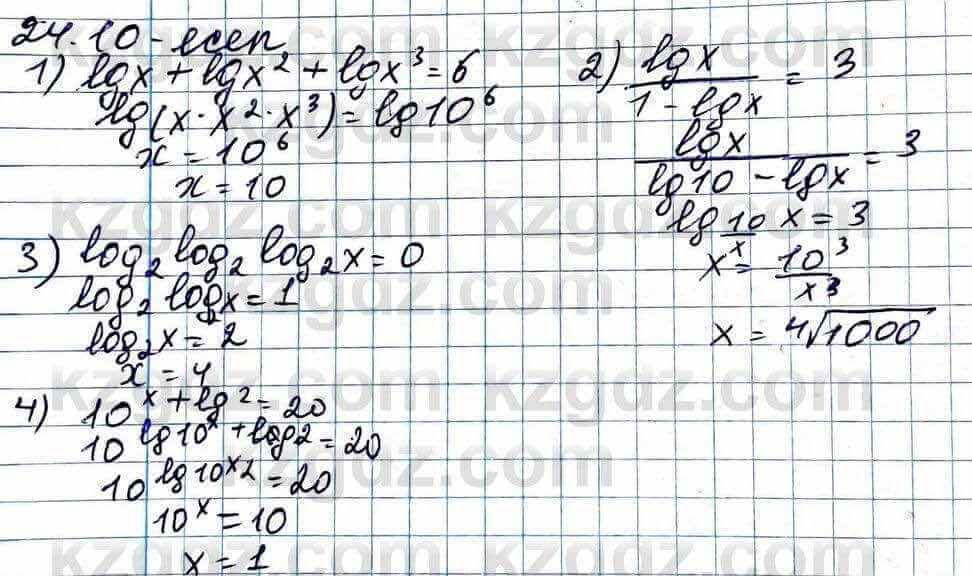 24.10-есеп
1) lgx + lgx² + lgx³ = 6
lg(x·x²·x³) = lg10⁶
x = 10⁶
x = 10
2) lgx / 1 - lgx = 3
lgx / lg10 - lgx = 3
lg 10/x x = 3
x = 10³ / x³
x = ⁴√1000
3) log₂ log₂ log₂x = 0
log₂ log₂x = 1
log₂x = 2
x = 4
4) 10^(x + lg2) = 20
10^(lg10ˣ + log2) = 20
10^(lg10ˣ2) = 20
10ˣ = 10
x = 1
kzgdz.com kzgdz.com
kzgdz.com kzgdz.com
kzgdz.com kzgdz.com
kzgdz.com kzgdz.com
kzgdz.com kzgdz.com